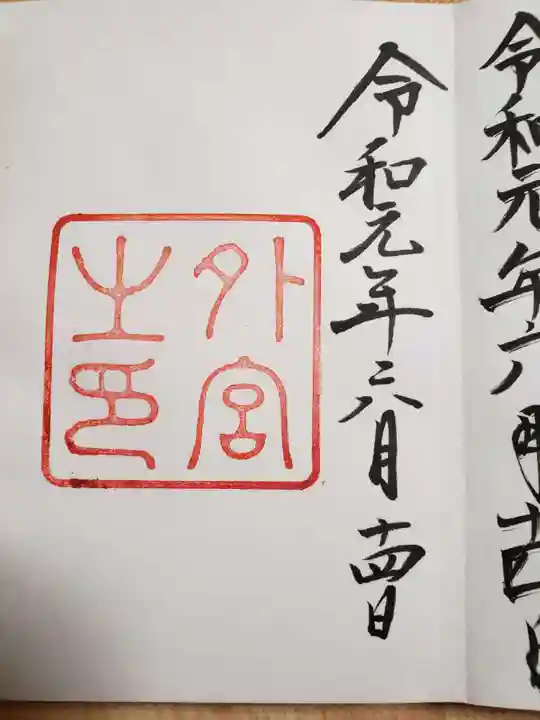 令和元年六月十四日
令和元年六月十四日
外宮
之印